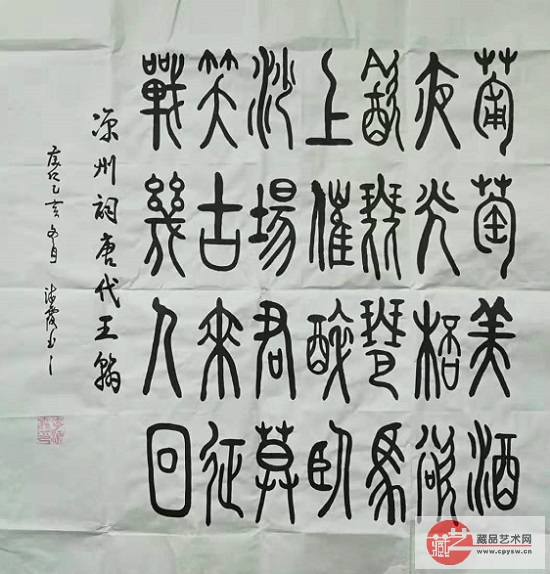 葡萄美酒
夜光杯欲
飲琵琶馬
上催醉臥
沙場君莫
笑古來征
戰幾人回
涼州詞唐代王翰
歲次己亥冬月
藏品艺术网
www.cpysw.cn